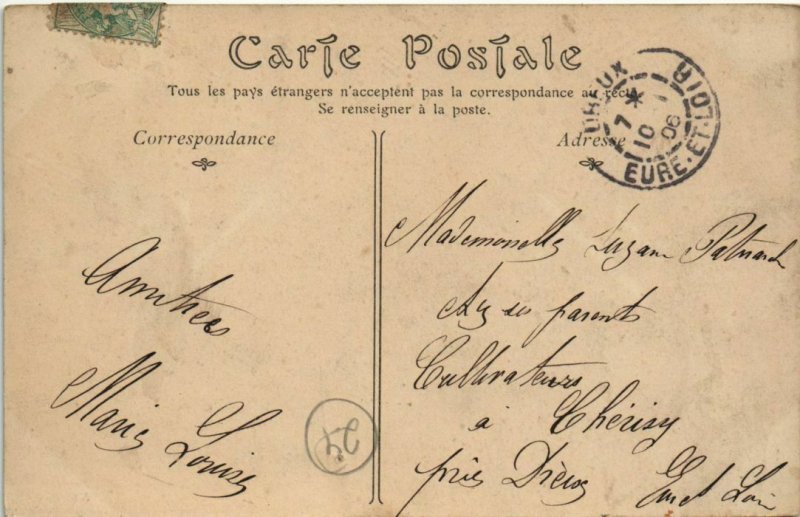 Carte Postale
Tous les pays étrangers n'acceptent pas la correspondance au recto
Se renseigner à la poste.
Correspondance
Adresse
DREUX
7 * 1
10 06
EURE-ET-LOIR
Amitiés
Marie Louise
24
Mademoiselle Suzane
chez ses parents
Cultivateurs
à Chérisy
près Dreux Eure et Loir